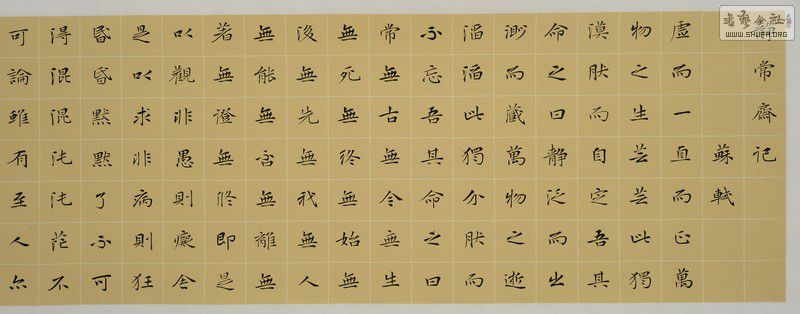 常齋記
蘇軾
虛而一直而正萬
物之生芸芸此獨
漠然而自定吾其
命之曰靜泛而出
渺而藏萬物之逝
滔滔此獨介然而
不忘吾其命之曰
常無古無今無生
無死無終無始無
後無先無我無人
無能無否無離無
著無證無修即是
以觀非愚則癡舍
是以求非病則狂
昏昏默默了不可
得混混沌沌茫不
可論雖有至人亦
WWW.SHUFA.ORG